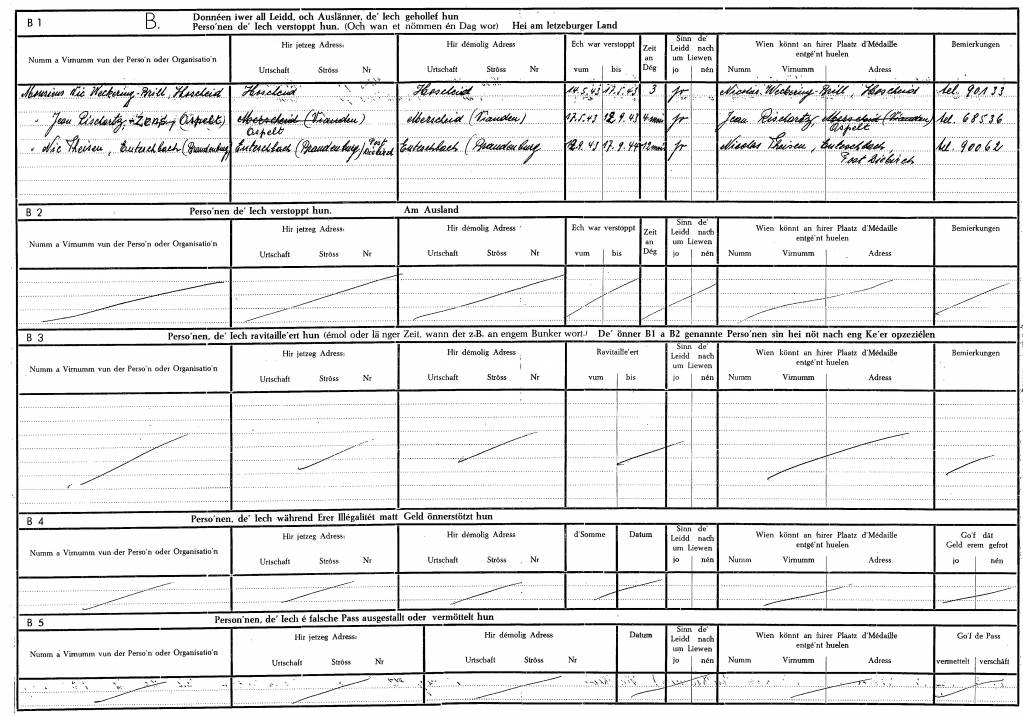 B 1 B. Donnéen iwer all Leidd, och Auslänner, de' Iech gehollef hun
Perso'nen de' Iech verstoppt hun. (Och wan et nömmen én Dag wor) Hei am letzeburger Land
Numm a Virnumm vun der Perso'n oder Organisatio'n
Hir jetzeg Adress:
Urtschaft Ströss Nr
Hir démolig Adress
Urtschaft Ströss Nr
Ech war verstoppt
vum bis
Zeit an Dég
Sinn de' Leidd nach um Liewen
jo nén
Wien könnt an hirer Plaatz d'Médaille entgé'nt huelen
Numm Virnumm Adress
Bemierkungen
Nic Weckering-Brill, Hoscheid Hoscheid Hoscheid 14.5.43 17.5.43 3 jo Nicolas Weckering-Brill, Hoscheid tel. 90133
" Jean (Aspelt) Merscheid (Vianden) Aspelt Merscheid (Vianden) 17.5.43 12.9.43 jo Jean Merscheid (Vianden) Aspelt tel. 68536
" Nic Theisen, (Brandenburg) (Brandenburg) Post Diekirch (Brandenburg 12.9.43 17.9.44 jo Nicolas Theisen, Post Diekirch tel. 90062
B 2 Perso'nen de' Iech verstoppt hun. Am Ausland
Numm a Virnumm vun der Perso'n oder Organisatio'n
Hir jetzeg Adress:
Urtschaft Ströss Nr
Hir démolig Adress
Urtschaft Ströss Nr
Ech war verstoppt
vum bis
Zeit an Dég
Sinn de' Leidd nach um Liewen
jo nén
Wien könnt an hirer Plaatz d'Médaille entgé'nt huelen
Numm Virnumm Adress
Bemierkungen
B 3 Perso'nen, de' Iech ravitaille'ert hun (émol oder länger Zeit, wann der z.B. an engem Bunker wort.) De' önner B1 a B2 genannte Perso'nen sin hei nöt nach eng Ke'er opzeziélen
Numm a Virnumm vun der Perso'n oder Organisatio'n
Hir jetzeg Adress:
Urtschaft Ströss Nr
Hir démolig Adress
Urtschaft Ströss Nr
Ravitaille'ert
vum bis
Sinn de' Leidd nach um Liewen
jo nén
Wien könnt an hirer Plaatz d'Médaille entgé'nt huelen
Numm Virnumm Adress
Bemierkungen
B 4 Perso'nen, de' Iech während Erer Illégalitét matt Geld önnerstötzt hun
Numm a Virnumm vun der Perso'n oder Organisatio'n
Hir jetzeg Adress:
Urtschaft Ströss Nr
Hir démolig Adress
Urtschaft Ströss Nr
d'Somme
Datum
Sinn de' Leidd nach um Liewen
jo nén
Wien könnt an hirer Plaatz d'Médaille entgé'nt huelen
Numm Virnumm Adress
Go'f dät Geld erem gefrot
jo nén
B 5 Person'nen, de' Iech é falsche Pass ausgestallt oder vermöttelt hun
Numm a Virnumm vun der Perso'n oder Organisatio'n
Hir jetzeg Adress:
Urtschaft Ströss Nr
Hir démolig Adress:
Urtschaft Ströss Nr
Datum
Sinn de' Leidd nach um Liewen
jo nén
Wien könnt an hirer Plaatz d'Médaille entgé'nt huelen
Numm Virnumm Adress
Go'f de Pass
vermettelt verschäft